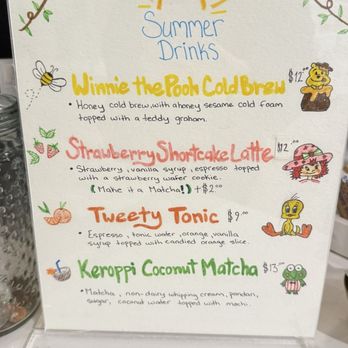 Summer
Drinks
Winnie the Pooh Cold Brew $12
• Honey cold brew, with a honey sesame cold foam
topped with a teddy graham.
Strawberry Shortcake Latte $12
• Strawberry, vanilla syrup, espresso topped
with a strawberry wafer cookie.
(Make it a Matcha!) +$2.00
Tweety Tonic $9.00
• Espresso, tonic water, orange, vanilla
syrup topped with candied orange slice.
Keroppi Coconut Matcha $13.00
• Matcha, non-dairy whipping cream, pandan,
sugar, coconut water topped with mochi.